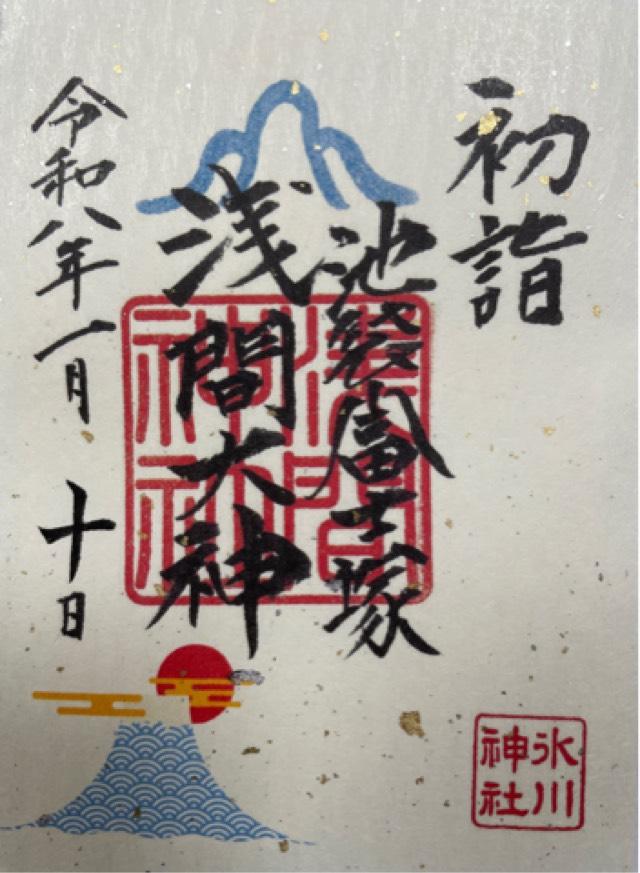 初詣
池袋富士塚
浅間大神
令和八年一月十日
浅間
神社
氷川
神社